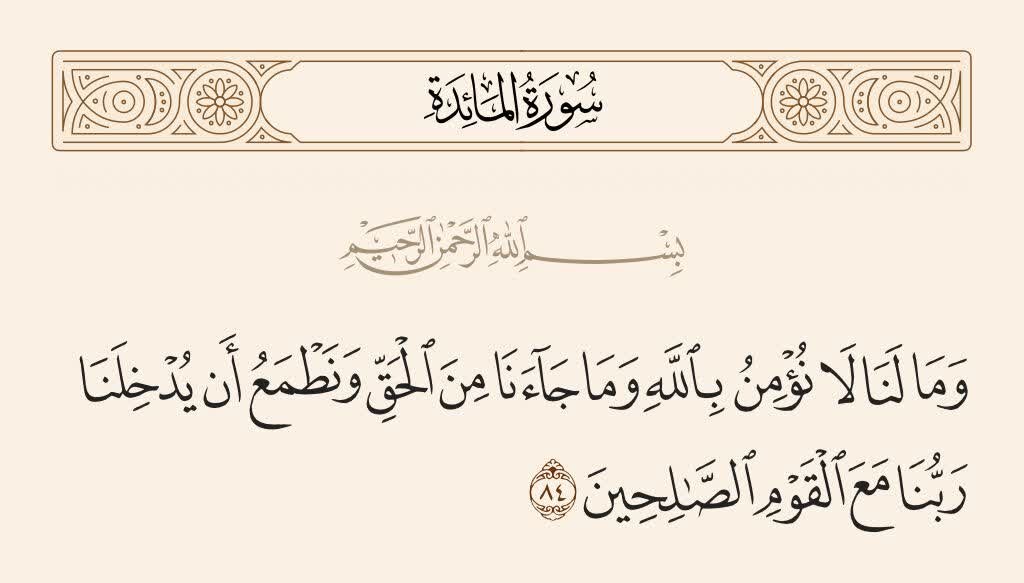 سُورَةُ المَائِدَةِ
بِسْمِ اللَّهِ الرَّحْمَٰنِ الرَّحِيمِ
وَمَا لَنَا لَا نُؤْمِنُ بِٱللَّهِ وَمَا جَآءَنَا مِنَ ٱلْحَقِّ وَنَطْمَعُ أَن يُدْخِلَنَا
رَبُّنَا مَعَ ٱلْقَوْمِ ٱلصَّـٰلِحِينَ ٨٤